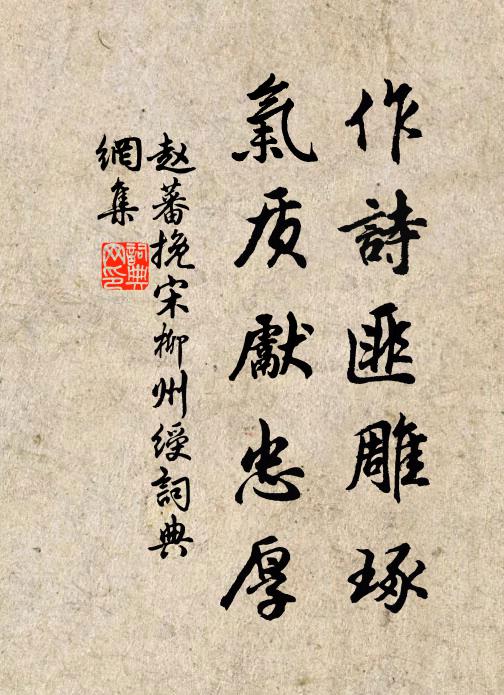 作詩匪雕琢
氣质獻忠厚
赵蕃挽宋柳州綬詞典
網集
詞典网印